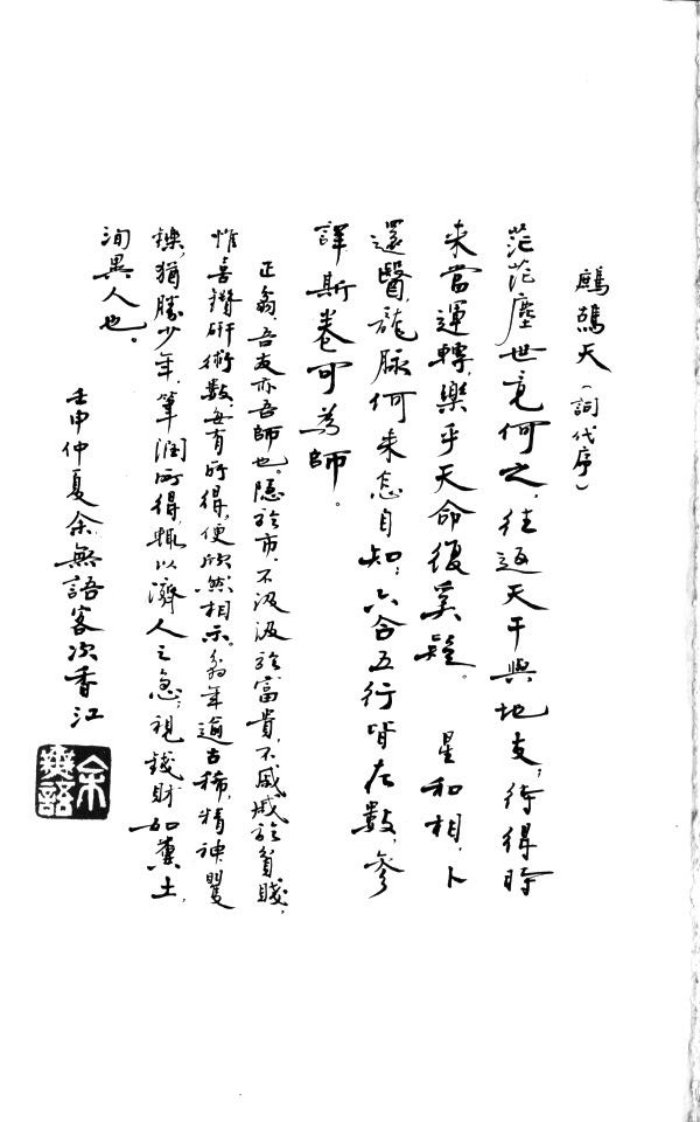 鷓鴣天（詞代序）
茫茫塵世竟何之，往返天干與地支；待得時
來當運轉，樂乎天命復奚疑。　星和相，卜
還醫，龍脉何來怎自知；六合五行皆在數，參
詳斯卷可為師。
正翁，吾友亦吾師也。隱於市，不汲汲於富貴，不戚戚於貧賤，
惟喜鑽研術數，每有所得，便欣然相示。翁年逾古稀，精神矍
鑠，猶勝少年，筆潤所得，輒以濟人之急；視錢財如糞土，
洵異人也。
壬申仲夏余無語客次香江
余無語